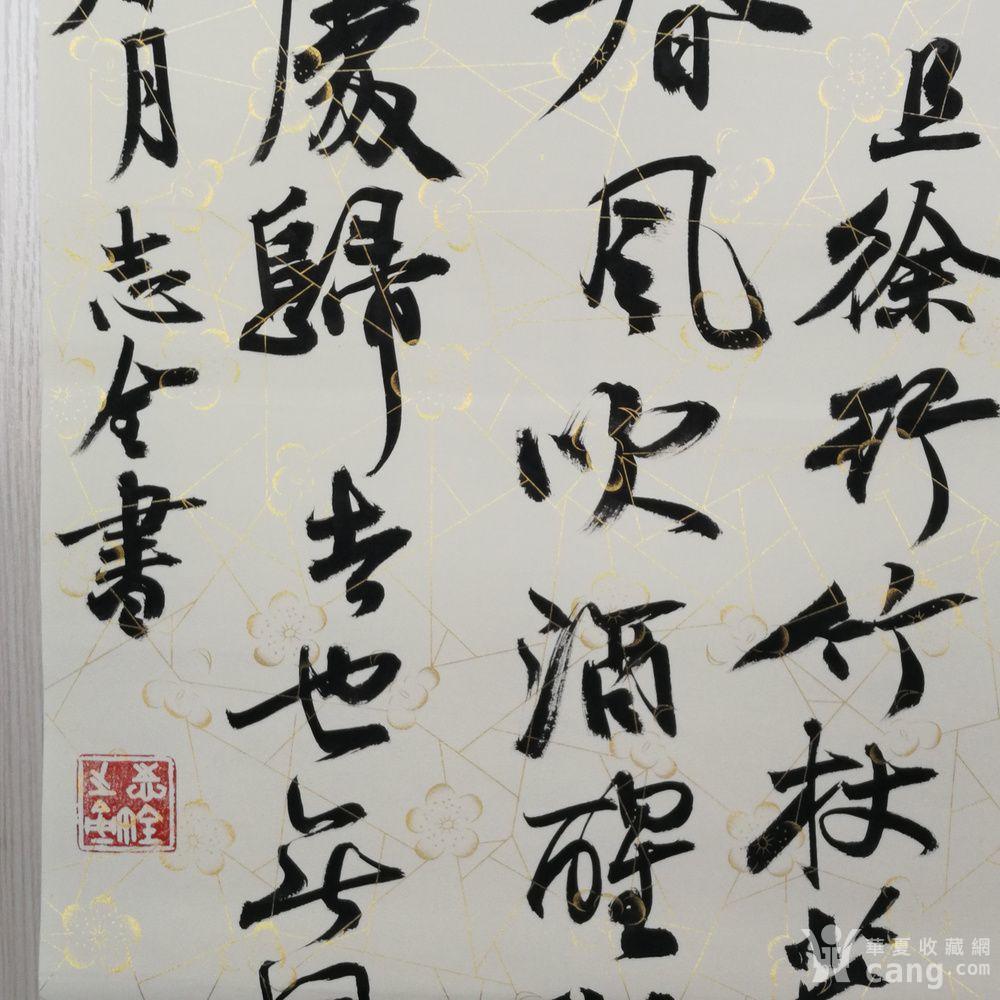 且徐行竹杖
春風吹酒醒
處歸去也無
月志全書
華夏收藏網
cang.com